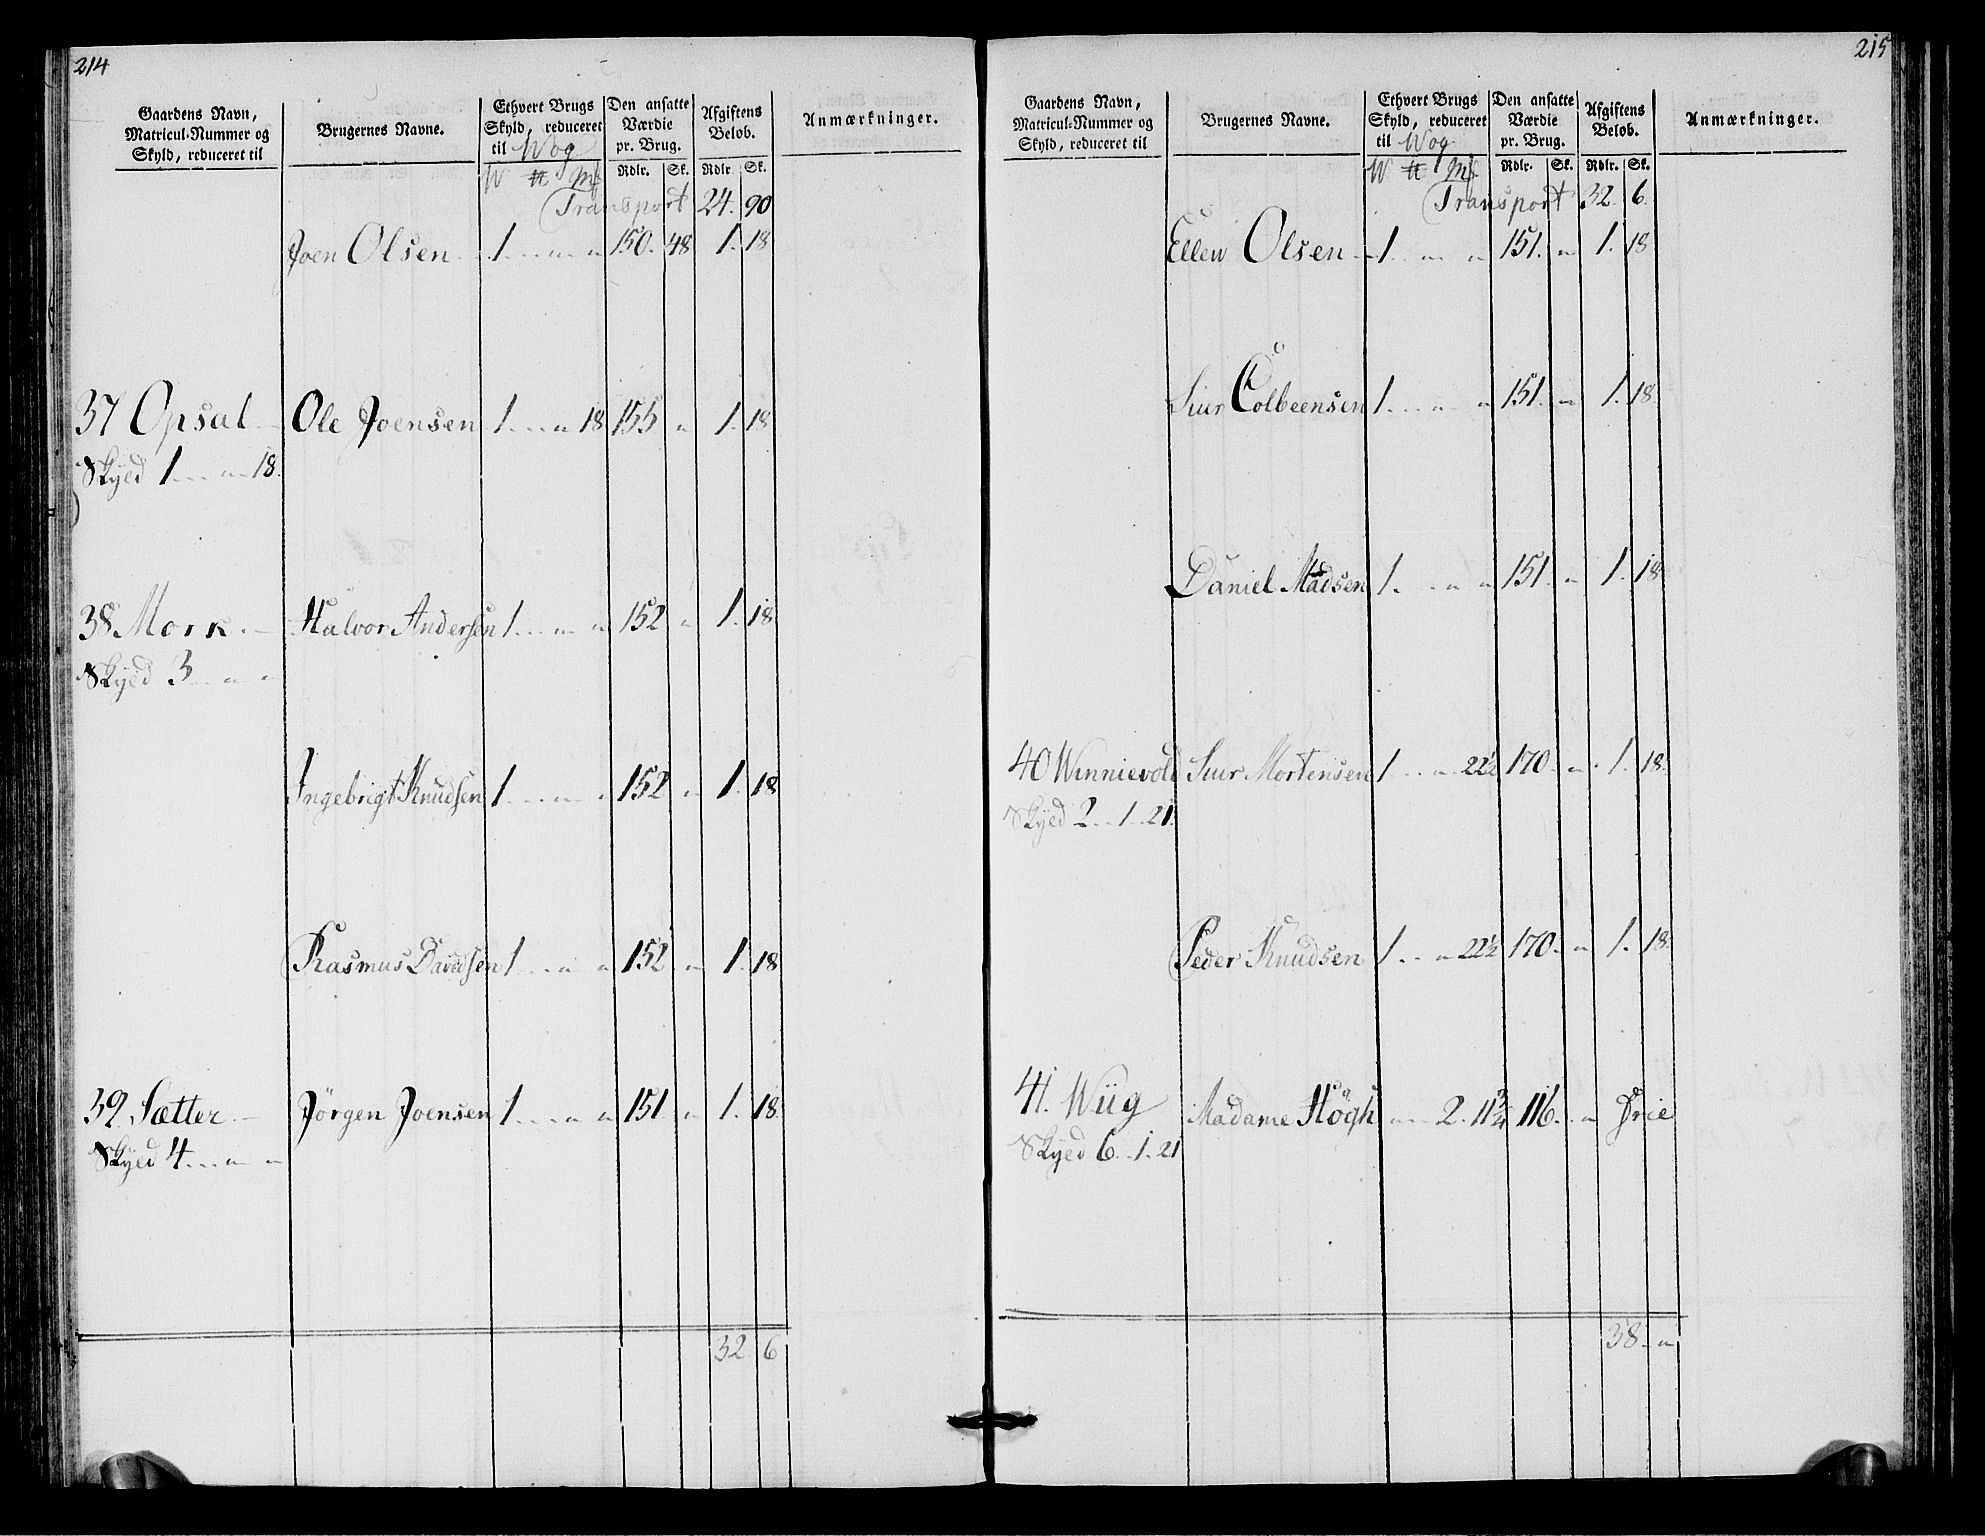 214
Gaardens Navn, Matricul-Nummer og Skyld, reduceret til
Brugernes Navne.
Ethvert Brugs Skyld, reduceret til Wog
Den ansatte Værdie pr. Brug.
Afgiftens Beløb.
Anmærkninger.
W ℔ Mk Rdlr. Sk. Rdlr Sk.
Transport 24. 90
Joen Olsen 1 " " 150. 48 1. 18
37 Opsal Ole Joensen 1 " 18 155 " 1. 18
Skyld 1 " 18.
38 Mork. Halvor Andersen 1 " " 152 " 1. 18
Skyld 3 " "
Ingebrigt Knudsen 1 " " 152 " 1. 18
Rasmus Davidsen 1 " " 152 " 1. 18
39. Sætter Jörgen Joensen 1 " " 151 " 1. 18
Skyld 4 " "
32. 6
215
Gaardens Navn, Matricul-Nummer og Skyld, reduceret til
Brugernes Navne.
Ethvert Brugs Skyld, reduceret til Wog
Den ansatte Værdie pr. Brug.
Afgiftens Beløb.
Anmærkninger.
W ℔ Mk Rdlr. Sk. Rdlr. Sk.
Transport 32. 6.
Ellew Olsen 1 " " 151. " 1. 18
Siur Colbeensen 1 " " 151. " 1. 18
Daniel Madsen 1. " " 151. " 1. 18
40 Winnievold Siur Mortensen 1 " 22½ 170. " 1. 18.
Skyld 2 " 1 " 21.
Peder Knudsen 1 " 22½ 170. " 1. 18
41. Wiig Madame Högh " 2. 11¾ 116. " Frie
Skyld 6 " 1. 21
38. "